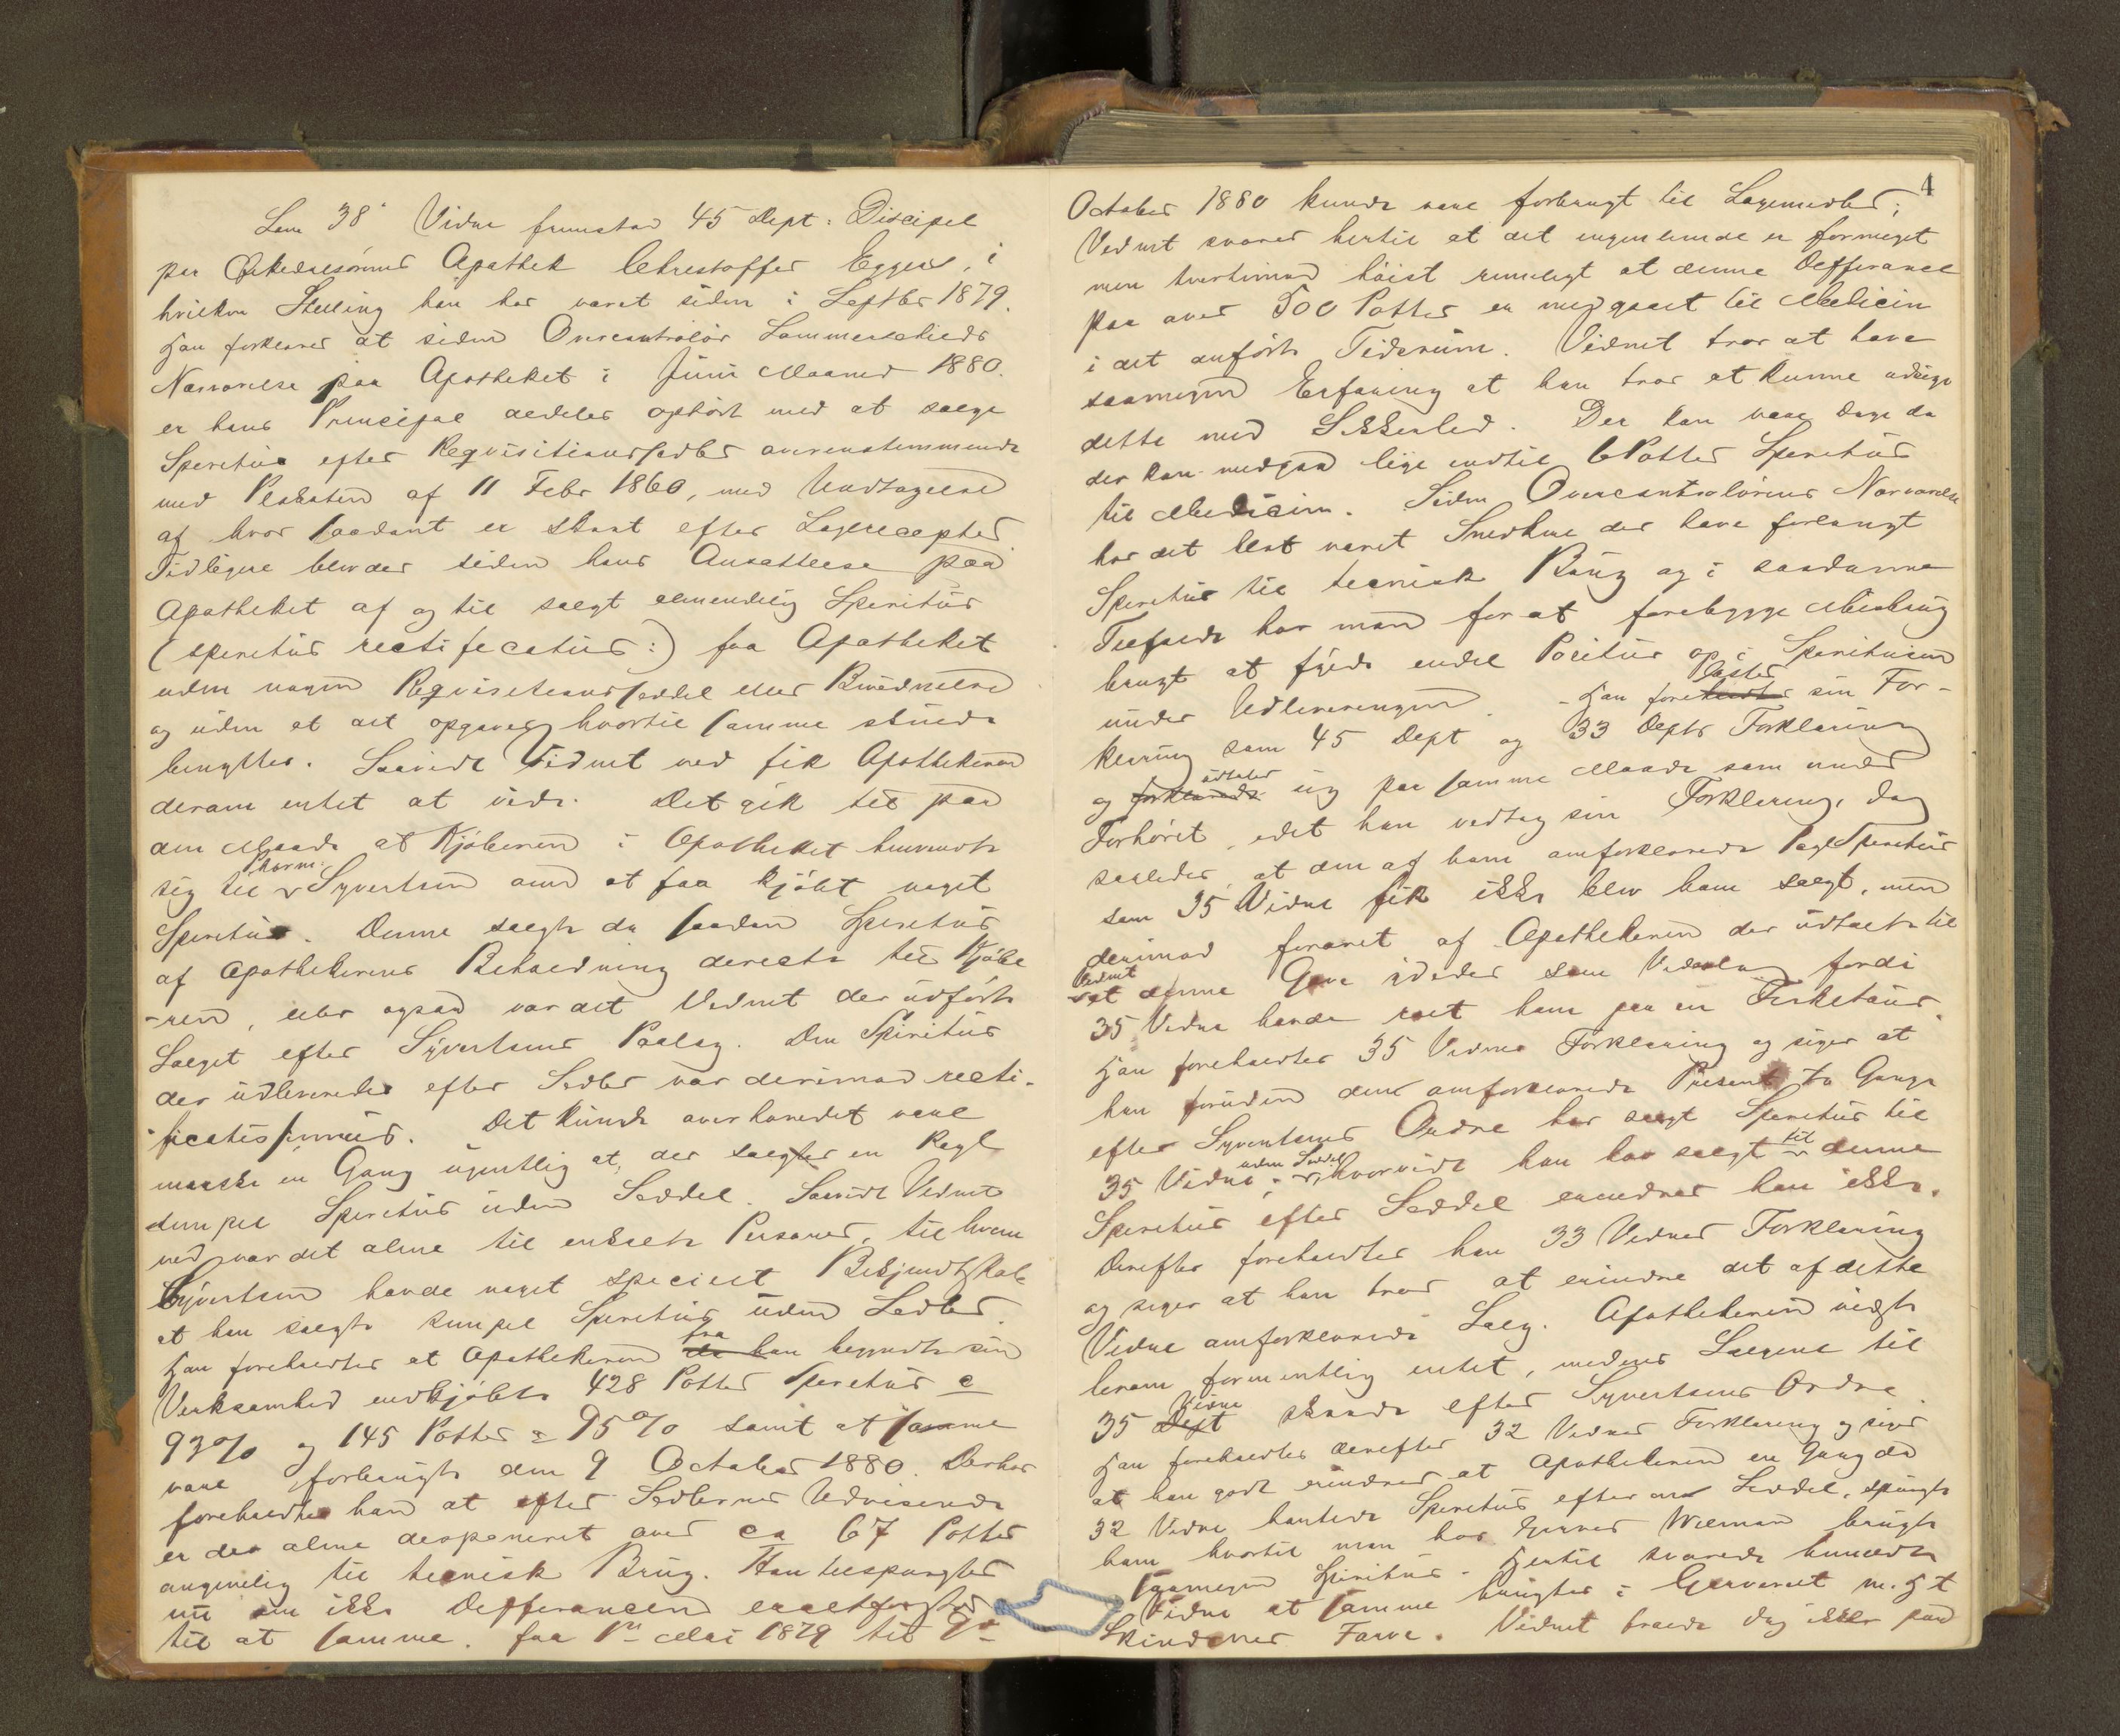 Som 38' Vidne fremstod 45 Dept: Discipel
paa Apothek Christoffer Eggers, i
hvilken Stilling han har været siden i Septbr 1879.
Han forklarer at siden Overcontrolør Sommerschields
Nærværelse paa Apotheket i Juni Maaned 1880.
er hans Principal aldeles ophørt med at sælge
Spiritus efter Reqvisitionssedler overensstemmende
med Plakaten af 11 Febr 1860, med Undtagelse
af hvor saadant er skeet efter Lægerecepter
Tidligere blev der siden hans Ansættelse paa
Apotheket af og til solgt almindelig Spiritus
(spiritus rectificatus:) fra Apotheket
uden nogen Reqvisitionsseddel eller Bevidnelse
og uden at det opgaves hvortil samme skulde
benyttes. Saavidt Vidnet ved fik Apothekeren
derom intet at vide. Det gik til paa
den Maade at Kjøberen i Apotheket henvendte
Pharm:
sig til Syvertsen om at faa kjøbt noget
Spiritus. Denne solgte da saadan Spiritus
af Apothekerens Beholdning directe til Kjøbe
-ren, eller ogsaa var det Vidnet der udførte
Salget efter Syvertsens Paalæg. Den Spiritus
der udleveredes efter Sedler var derimod recti-
ficatissimus. Det kunde overhovedet være
maaske en Gang ugentlig at der solgtes en Pægl
simpel Spiritus uden Seddel. Saavidt Vidnet
ved var det alene til enkelte Personer, til hvem
Syvertsen havde noget specielt Bekjendtskab
at han solgte simpel Spiritus uden Sedler.
fra
Han foreholdtes at Apothekeren da han begyndte sin
Verksomhed indkjøbte 428 Potter Spiritus a
93% og 145 Potter a 95% samt at samme
vare forbrugte den 9 October 1880. Derhos
foreholdtes han at efter Sedlernes Udvisende
er der alene disponeret over ca 67 Potter
angivelig til tecnisk Brug. Han tilspurgtes
nu om ikke Differancen
til at samme fra 1ste Mai 1879 til 9de
4
October 1880 kunde være forbrugt til Lægemidler;
Vidnet svarer hertil at det ingenlunde er formeget
men tvertimod høist rimeligt at denne Differance
paa over 500 Potter er medgaaet til Medicin
i det anførte Tidsrum. Vidnet tror at have
saamegen Erfaring at han tror at kunne udsige
dette med Sikkerhed. Der kan være Dage da
der kan medgaa lige indtil 6 Potter Spiritus
til Medicin. Siden Overcontrolørens Nærværelse
har det blot været Snedkere der have forlangt
Spiritus til tecnisk Brug og i saadanne
Tilfælde har man for at forebygge Misbrug
brugt at gyde endel Politur op i Spiritusen
læstes
under Udleveringen. - Han foreholdtes sin For-
klaring som 45 Dept og 33 Depts Forklaring
udtaler
og forklarede sig paa samme Maade som under
Forhøret, idet han vedtog sin Forklaring, dog
saaledes, at den af ham omforklarede Pægl Spiritus
som 35 Vidne fik ikke blev ham solgt, men
derimod foræret af Apothekeren der udtalte til
Vidnet
at denne Gave ydedes som Vederlag fordi
35 Vidne havde roet ham paa en Fisketour.
Han foreholdtes 35 Vidnes Forklaring og siger at
han foruden den omforklarede Present to Gange
efter Syvertsens Ordre har solgt Spiritus til
uden Seddel til
35 Vidne; hvorvidt han har solgt denne
Spiritus efter Seddel erindrer han ikke.
Derefter foreholdtes han 33 Vidnes Forklaring
og siger at han tror at erindre det af dette
Vidne omforklarede Salg. Apothekeren vidste
herom formentlig intet, medens Salgene til
Vidne
35 Dept skeede efter Syvertsens Ordre.
Han foreholdtes derefter 32 Vidnes Forklaring og siger
at han godt erindrer at Apothekeren en Gang da
32 Vidne hentede Spiritus efter en Seddel, spurgte
ham hvortil man hos Garver Wiemann brugte
saamegen Spiritus. Hertil svarede bemeldte
Vidne at samme brugtes i Garveriet m. H t
Skindenes Farve. Vidnet troede dog ikke paa